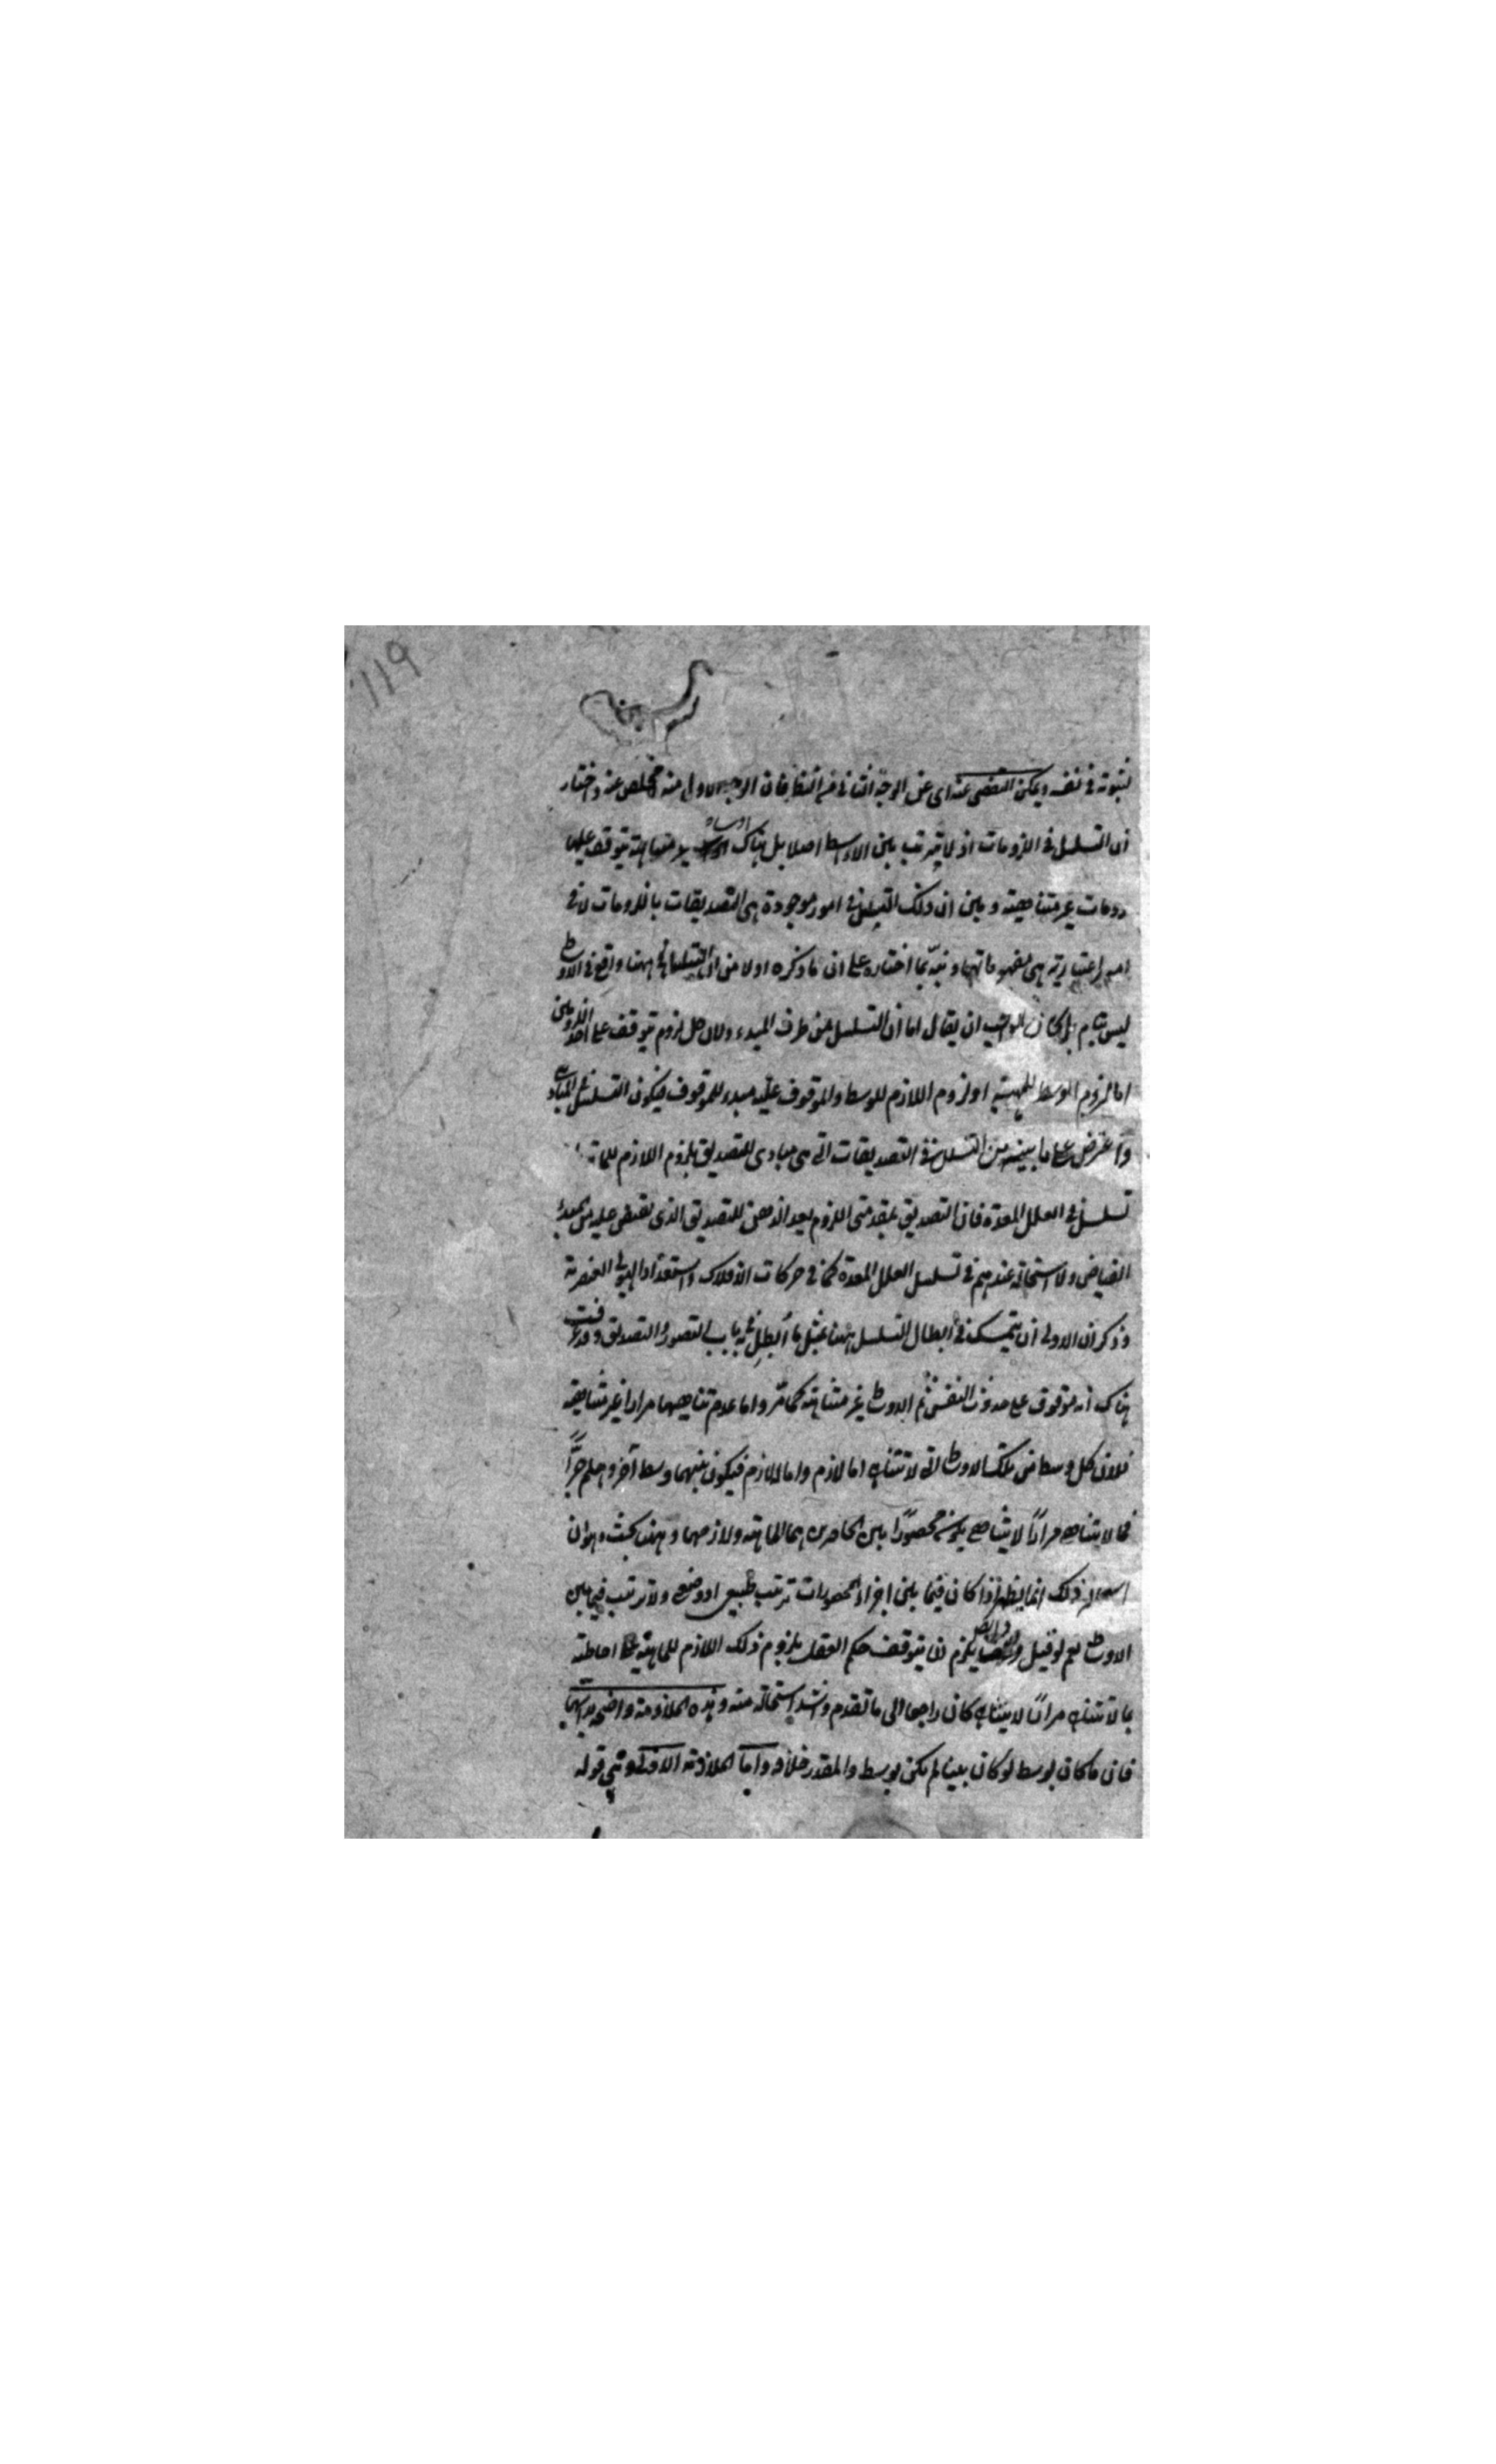 ١١٩
لثبوته في نفسه ويمكن التفصي عنه اى عن الوجه الثاني فان الوجه الاول منه مخلص عنه واختار
ان التسلسل في اللزومات اذ لا يترتب بين الاوساط اصلا بل هناك اوساط غير متناهية يتوقف عليها
لزومات غير متناهية وبين ان ذلك التسلسل في امور موجودة هي التصديقات باللزومات لا في
امور اعتبارية هي مفهوماتها ونبه بما اختاره على ان ما ذكره اولا من ان التسلسل ههنا واقع في الاوساط
ليس بتام بل كان الواجب ان يقال اما ان التسلسل من طرف المبدء فلان كل لزوم يتوقف على احد اللزومين
اما لزوم الوسط للمهية او لزوم اللازم للوسط والموقوف عليه مبدء للموقوف فيكون التسلسل في المبادى
واعترض على ما بينه من التسلسل في التصديقات التى هى مبادى للتصديق بلزوم اللازم للماهية
تسلسل في العلل المعدة فان التصديق بمقدمتى اللزوم يعد الذهن للتصديق الذى يفيض عليه من المبدء
الفياض ولا استحالة عندهم في تسلسل العلل المعدة كما في حركات الافلاك واستعداد الهيولى العنصرية
وذكر ان الاولى ان يتمسك في ابطال التسلسل ههنا بمثل ما ابطل به في باب التصور والتصديق وقد عرفت
هناك انه موقوف على حدوث النفس ثم الاوساط غير متناهية كما مر واما عدم تناهيها مرارا غير متناهية
فلان كل وسط من تلك الاوساط التى لا تتناهى اما لازم واما للازم فيكون بينهما وسط آخر وهلم جرّا
فما لا يتناهى مرارًا لا يتناهى يكون محصورًا بين الحاصرين هما الماهية ولازمها وههنا بحث وهو ان
استحالة ذلك انما يظهر اذا كان فيما بين اجزاء المحصورات ترتب طبيعى او وضعى ولا ترتب فيما بين
الاوساط نعم لو قيل وايضا يلزم ان يتوقف حكم العقل بلزوم ذلك اللازم للماهية على احاطته
بما لا تتناهى مرارًا لا يتناهى كان راجعا الى ما تقدم واشد استحالة منه وهذه الملازمة واضحة بذاتها
فان ما كان بوسط لو كان بينا لم يكن بوسط والمقدر خلافه واما الملازمة الاخرى وهى قوله